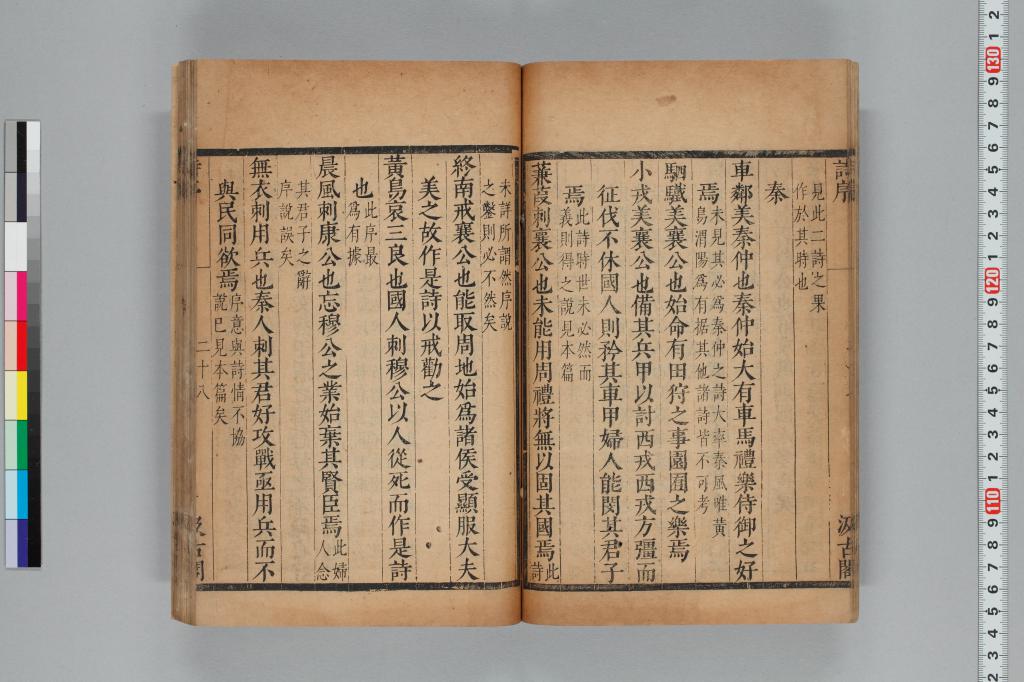 詩序
汲古閣
見此二詩之果
作於其時也
秦
車鄰美秦仲也秦仲始大有車馬禮樂侍御之好
焉未見其必爲秦仲之詩大率秦風唯黃
鳥渭陽爲有据其他諸詩皆不可考
駟驖美襄公也始命有田狩之事園囿之樂焉
小戎美襄公也備其兵甲以討西戎西戎方彊而
征伐不休國人則矜其車甲婦人能閔其君子
焉此詩時世未必然而
義則得之說見本篇
蒹葭刺襄公也未能用周禮將無以固其國焉此
詩
未詳所謂然序說
之鑿則必不然矣
終南戒襄公也能取周地始爲諸侯受顯服大夫
美之故作是詩以戒勸之
黃鳥哀三良也國人刺穆公以人從死而作是詩
也此序最
爲有據
晨風刺康公也忘穆公之業始棄其賢臣焉此婦
人念
其君子之辭
序說誤矣
無衣刺用兵也秦人刺其君好攻戰亟用兵而不
與民同欲焉序意與詩情不協
說已見本篇矣
二十八